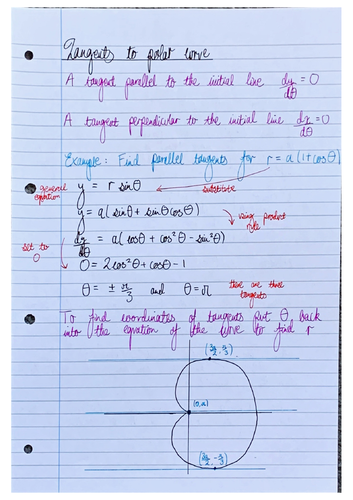 Tangents to polar curve
A tangent parallel to the initial line dy/dθ = 0
A tangent perpendicular to the initial line dx/dθ = 0
Example: Find parallel tangents for r = a(1+cosθ)
general equation
y = r sinθ
substitute
y = a(sinθ + sinθcosθ)
using product rule
dy/dθ = a(cosθ + cos²θ - sin²θ)
set to 0
0 = 2cos²θ + cosθ - 1
θ = ± π/3 and θ = π
there are three tangents
To find coordinates of tangents put θ back
into the equation of the curve to find r
(3a/2, π/3)
(0,π)
(3a/2, -π/3)